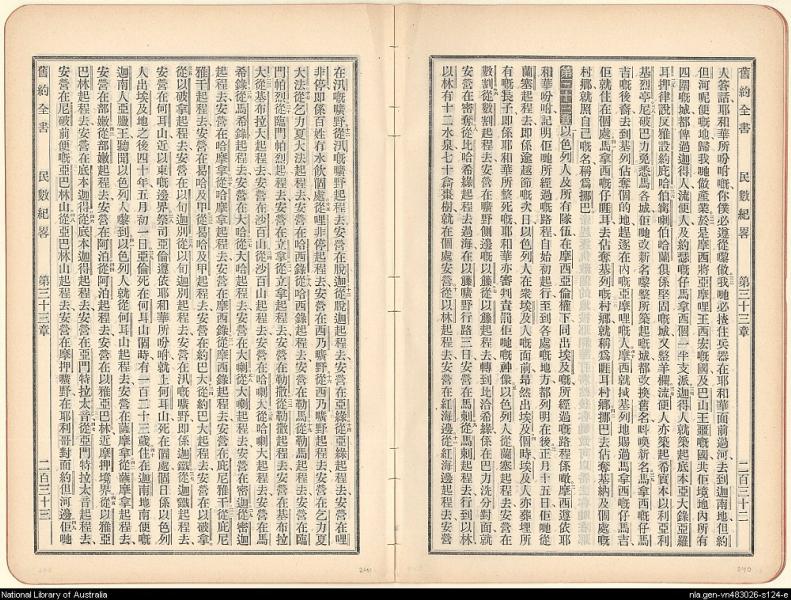 舊約全書 民數紀畧 第三十三章 二百三十二
人答話耶和華所吩咐嘅你僕必遵從嚟做我哋必捲住兵器在耶和華面前過河去到迦南地但約
但河呢便嘅地歸我哋做產業於是摩西將亞摩哩王西宏嘅國及巴山王噩嘅國共佢境地內所有
四圍嘅城都俾過迦得人流便人及約瑟嘅仔馬拿西個一半支派迦得人就築起底本亞大錄亞羅
耳押律說反雅設約庇哈伯喇伯哈蘭俱係堅固嘅城又整羊欄流便人亦築起希實本以利亞利
基烈亭尼破巴力免悉馬各城佢哋改新名嚟整所築起嘅城都改換舊名呌喚新名馬拿西嘅仔馬
吉嘅後裔去到基列佔奪個的地趕逐在內嘅亞摩哩嘅人摩西就基列地賜過馬拿西嘅仔馬吉
佢就住在個處馬拿西嘅仔睚耳去佔奪基列嘅村鄉就稱爲睚耳村鄉挪巴去佔奪基納及個處嘅
村鄉就照自己嘅名稱爲挪巴
第三十三章以色列人及所有隊伍在摩西亞倫權下同出埃及嘅所經過嘅路程係噉摩西遵依耶
和華吩咐記明佢哋所經過嘅路程自始初起行至到各處嘅地方都列明在後正月十五日佢哋從
蘭塞起程去即係逾越節嘅次日以色列人在衆埃及人嘅面前昂然出埃及個時埃及人亦葬埋所
有嘅長子即係耶和華所整死嘅耶和華亦審判責罰佢哋嘅神像以色列人從蘭塞起程去安營在
數割從數割起程去安營在曠野側邊嘅以籐從以籐起程去轉到比洽希綠係在巴力洗分對面就
安營在密奪從比哈希綠起程去過海在以籐曠野行路三日安營在馬刺從馬刺起程去行到以林
以林有十二水泉七十條棗樹就在個處安營從以林起程去安營在紅海邊從紅海邊起程去安營
舊約全書 民數紀畧 第三十三章 二百三十三
在汛嘅曠野從汛嘅曠野起程去安營在脫迦從脫迦起程去安營在亞綠從亞綠起程去安營在哩
非停即係百姓冇水飲個處從哩非停起程去安營在西乃曠野從西乃曠野起程去安營在乞力夏
大法從乞力夏大法起程去安營在哈西錄從哈西錄起程去安營在立拿從立拿起程去安營在臨
門帕烈從臨門帕烈起程去安營在立拿從立拿起程去安營在勒撒從勒撒起程去安營在基布拉
大從基布拉大起程去安營在沙百山從沙百山起程去安營在哈喇大從哈喇大起程去安營在馬
希錄從馬希錄起程去安營在大哈從大哈起程去安營在大喇從大喇起程去安營在密迦從密迦
起程去安營在哈摩拿從哈摩拿起程去安營在摩西錄從摩西錄起程去安營在庇尼雅干從庇尼
雅干起程去安營在曷哈及甲從曷哈及甲起程去安營在約巴大從約巴大起程去安營在以破拿
從以破拿起程去安營在以旬迦別從以旬迦別起程去安營在汛嘅曠野即係迦鐵從迦鐵起程去
安營在何耳山近以東嘅邊界祭司亞倫遵依耶和華所吩咐就上何耳山死在個處個日係以色列
人出埃及地之後四十年五月初一日亞倫死在何耳山個時有一百二十三歲住在迦南地南便嘅
迦南人亞臘王聽聞以色列人嚟到以色列人就從何耳山起程去安營在薩摩拿從薩摩拿起程去
安營在部嫩從部嫩起程去安營在阿泊從阿泊起程去安營在以雅亞巴林近摩押境界從以雅亞
巴林起程去安營在底本迦得從底本迦得起程去安營在亞門特拉太音從亞門特拉太音起程去
安營在尼破前便嘅亞巴林山從亞巴林山起程去安營在摩押曠野在耶利哥對面約但河邊佢哋
240
241
National Library of Australia
nla.gen-vn483026-s124-e